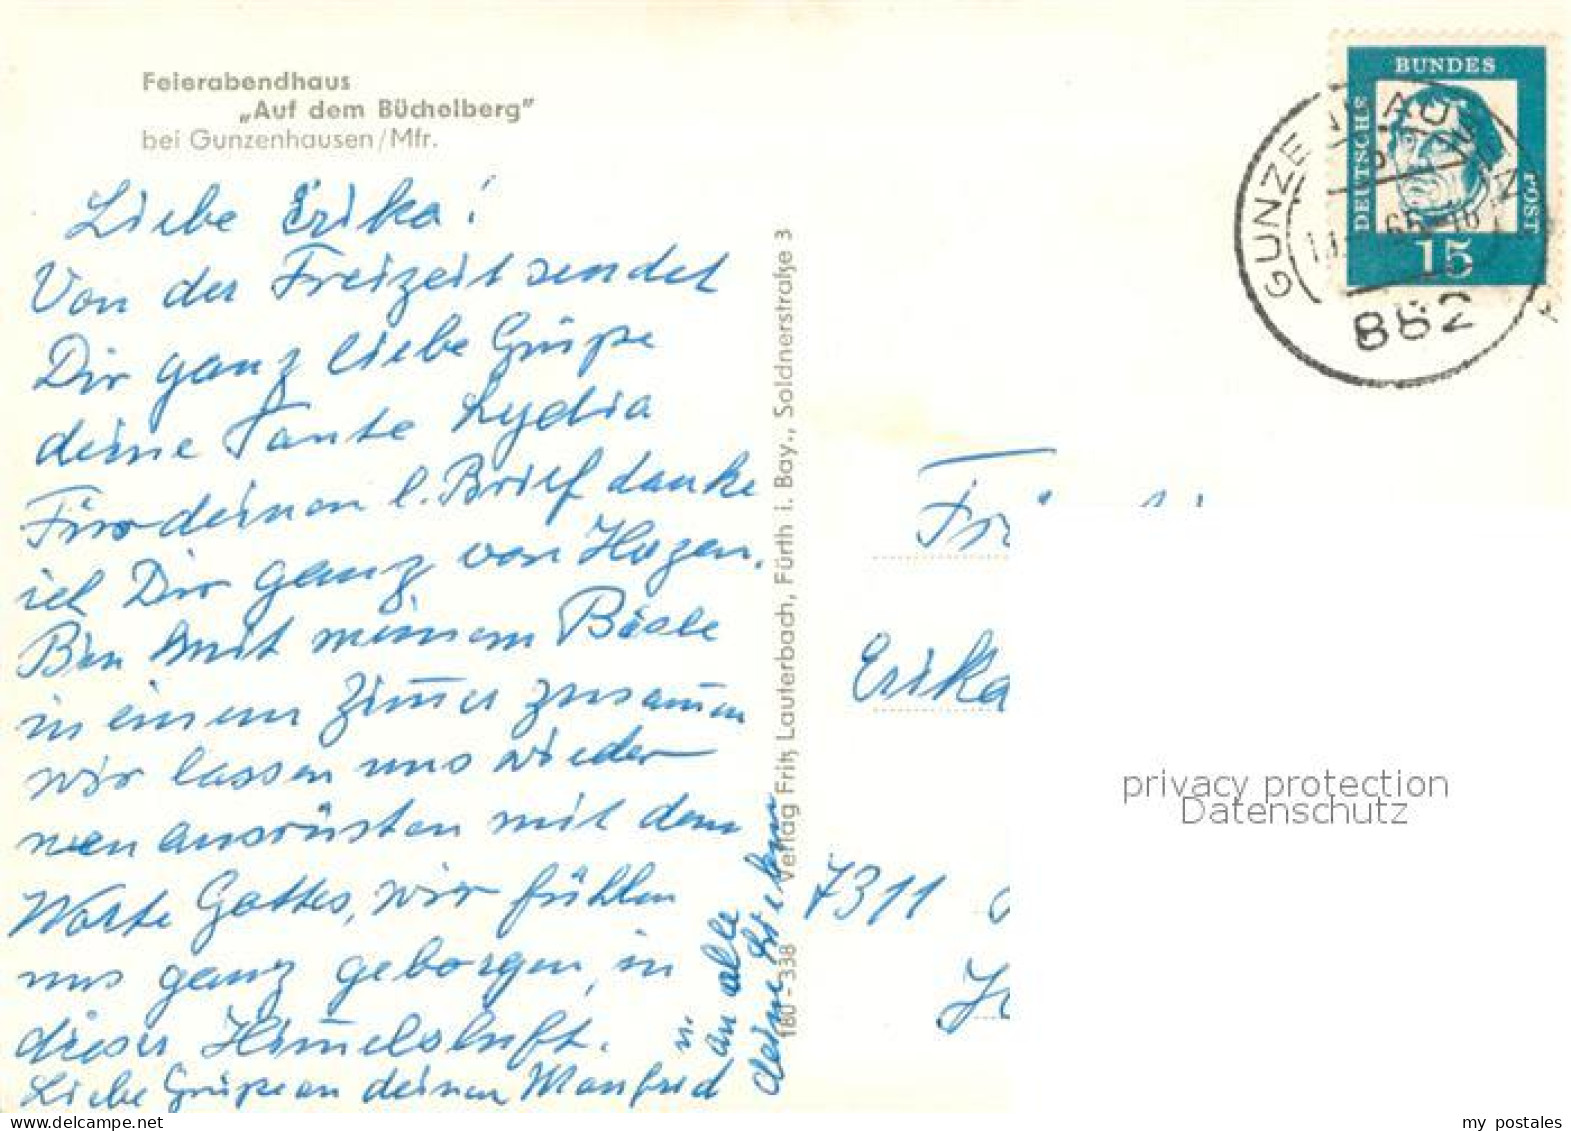 Feierabendhaus
„Auf dem Büchelberg"
bei Gunzenhausen/Mfr.
Liebe Erika!
Von der Freizeit sendet
Dir ganz liebe Grüße
deine Tante Lydia
Für deinen l. Brief danke
ich Dir ganz von Herzen.
Bin mit meinem Bäsle
in einem Zim̅er zusam̅en
wir lassen uns wieder
neu ausrüsten mit dem
Worte Gottes, wir fühlen
uns ganz geborgen, in
dieser Him̅elsluft.
Liebe Grüße an deinen Manfred
u. an alle
deine Lieben
180-338 Verlag Fritz Lauterbach, Fürth i. Bay., Soldnerstraße 3
DEUTSCHE BUNDES POST
15
GUNZENHAUSEN
882
Erika
7311
privacy protection
Datenschutz
my postales